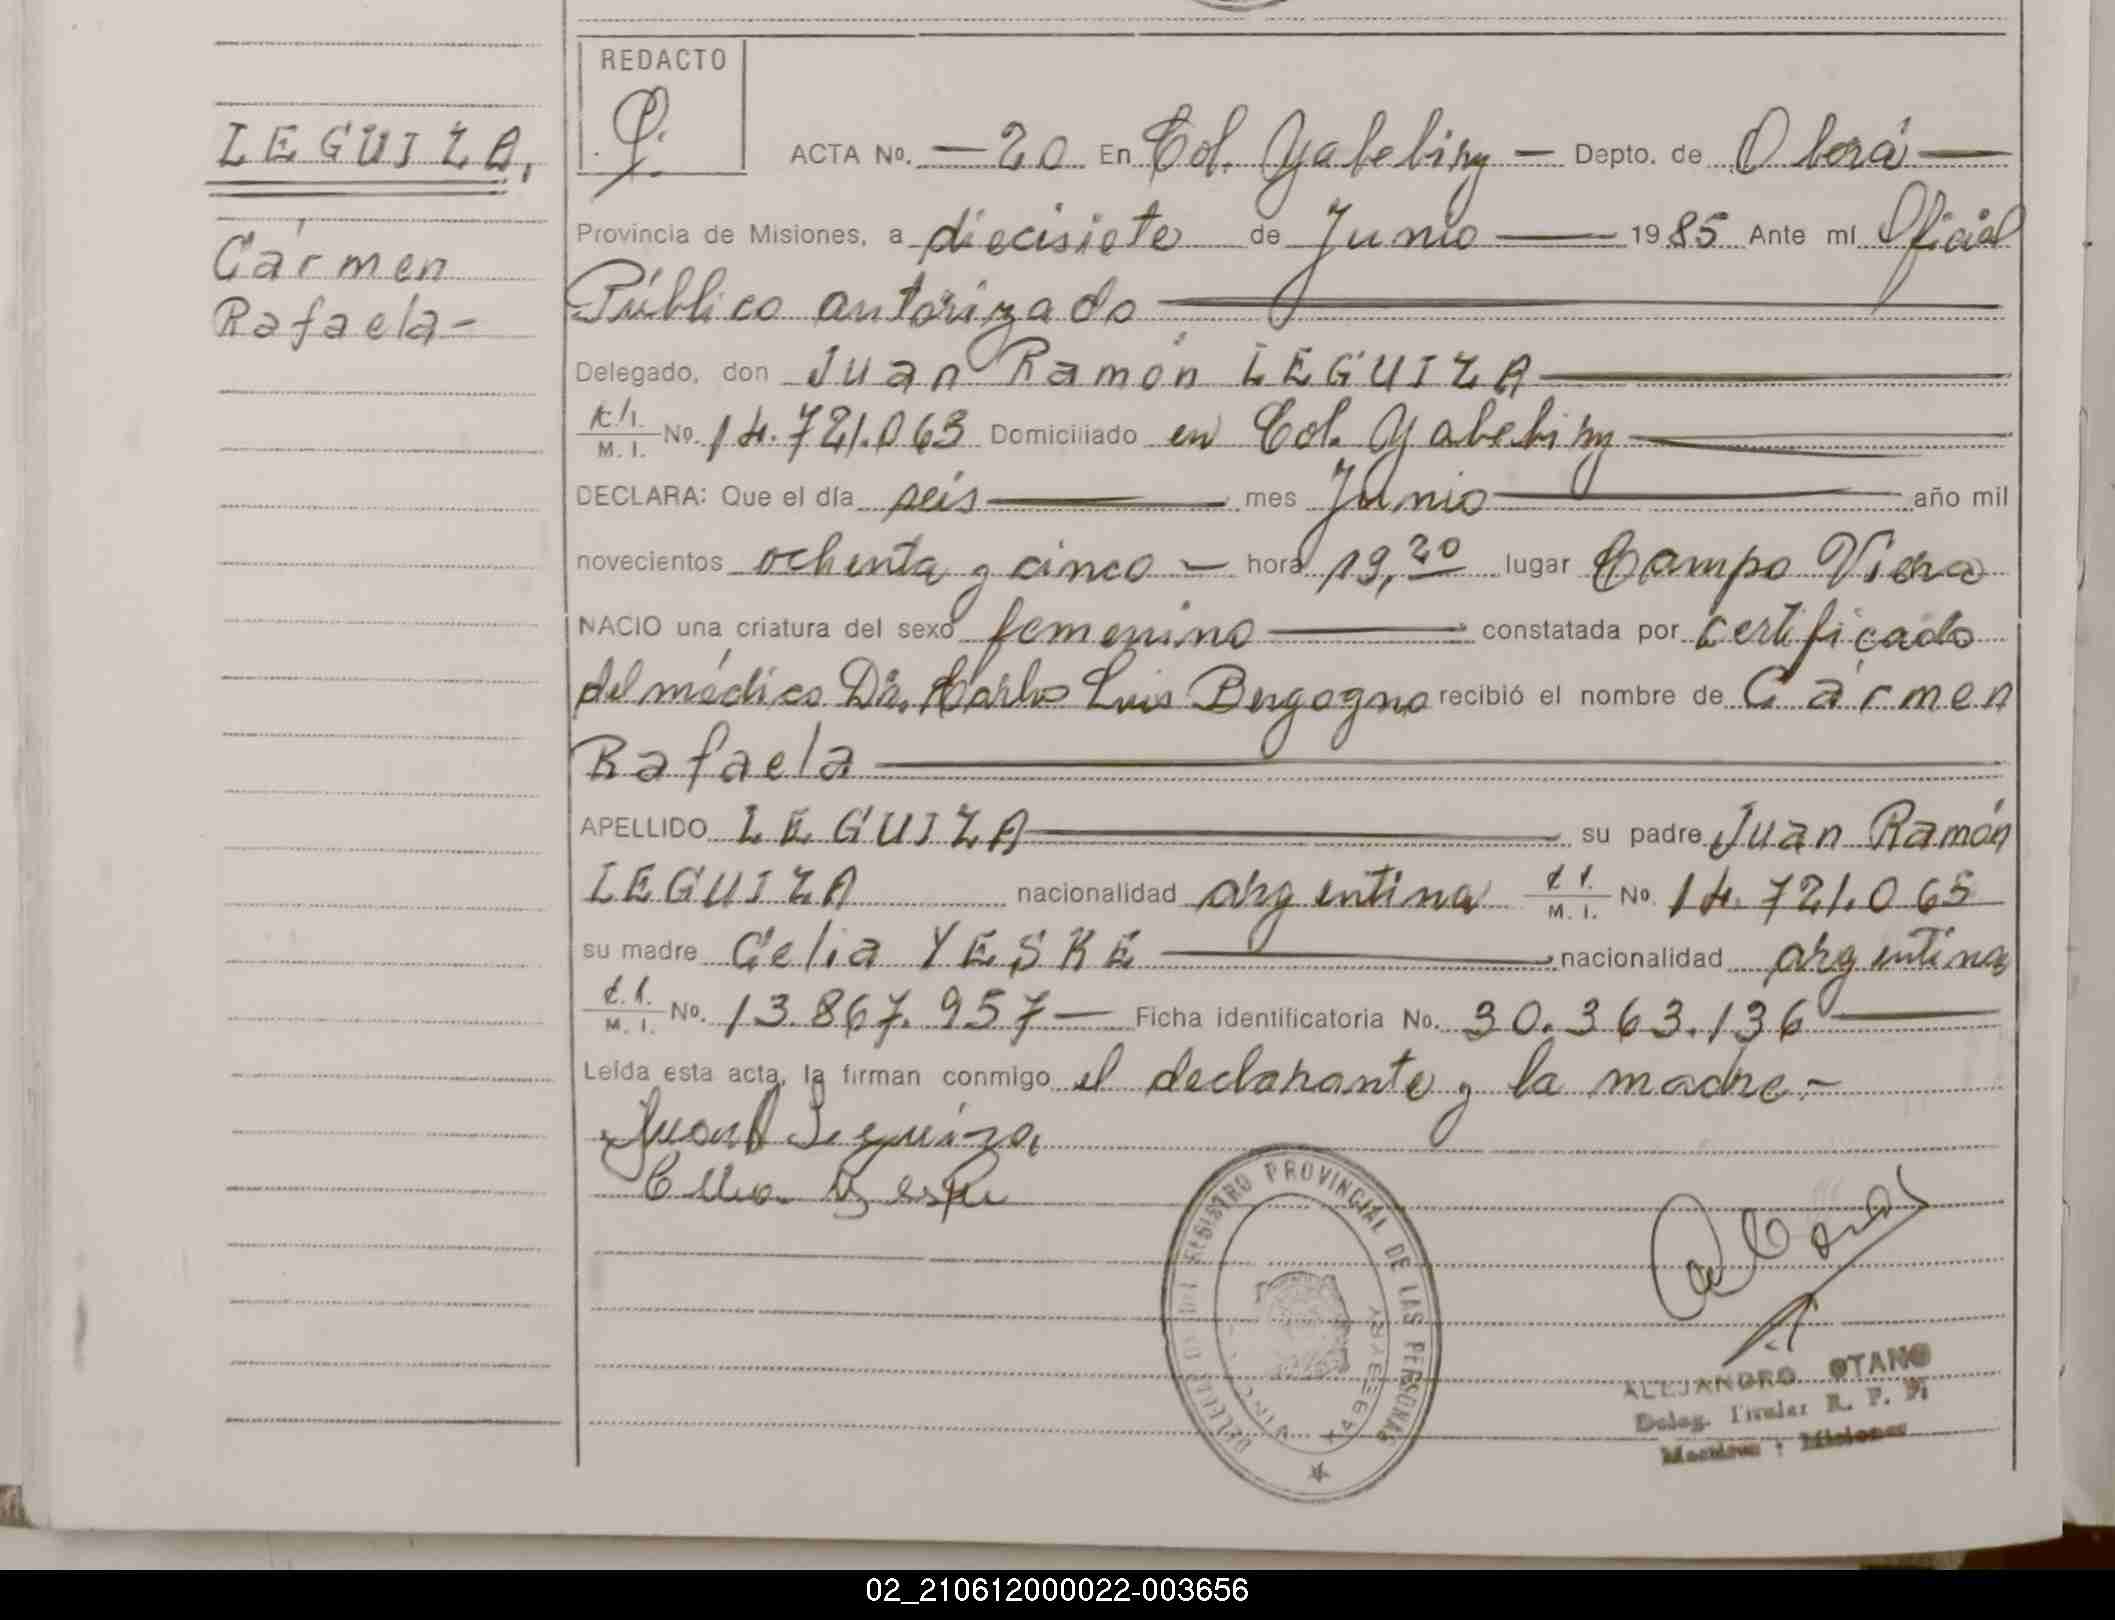 REDACTO
LEGUIZA,
Cármen
Rafaela-
ACTA No. —20 En Col. Yabebiry — Depto. de Oberá —
Provincia de Misiones, a diecisiete de Junio — 1985 Ante mí Oficial
Público autorizado —
Delegado, don Juan Ramón LEGUIZA —
C.I. M. I. No. 14.721.063 Domiciliado en Col. Yabebiry —
DECLARA: Que el día seis — mes Junio — año mil
novecientos ochenta y cinco — hora 19,20 lugar Campo Viera
NACIO una criatura del sexo femenino — constatada por certificado
del médico Dr. Carlos Luis Bergogno recibió el nombre de Cármen
Rafaela —
APELLIDO LEGUIZA — su padre Juan Ramón
LEGUIZA nacionalidad argentina C.I. M. I. No. 14.721.065
su madre Celia YESKE — nacionalidad argentina
C.I. M. I. No. 13.867.957 — Ficha identificatoria No. 30.363.136 —
Leída esta acta, la firman conmigo el declarante y la madre.-
Juan Leguiza
Celia Yeske
REGISTRO PROVINCIAL DE LAS PERSONAS
YABEBIRY
ALEJANDRO OTANO
Deleg. Titular R. P. P.
Misiones
02_210612000022-003656